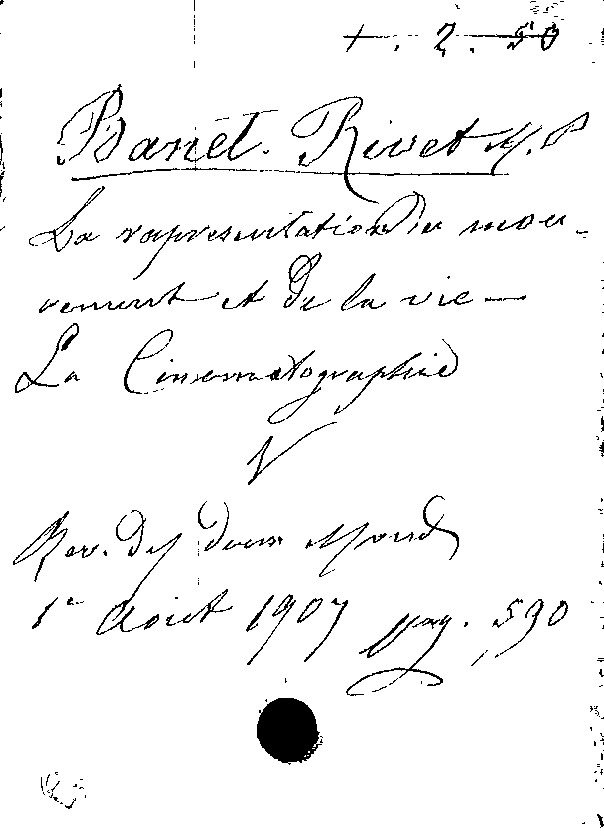 +. 2. 50
Banet. Rivet M. P
La representation du mou-
vement et de la vie —
La Cinematographie
V
Rev. des deux Mond
1er Août 1907 pag. 590